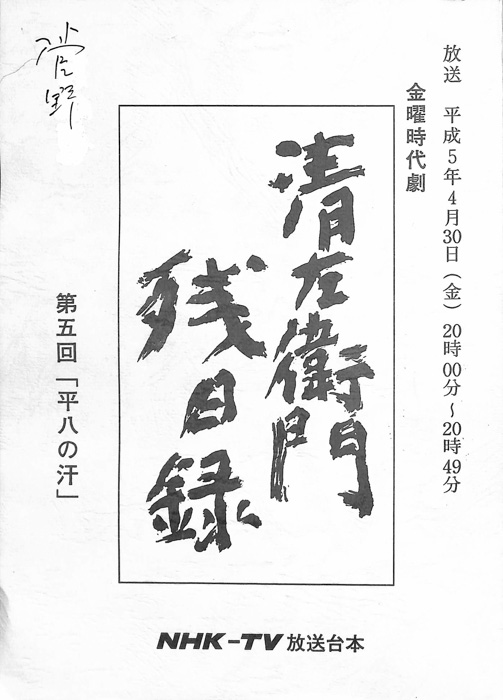 放送　平成5年4月30日（金）20時00分～20時49分
金曜時代劇
清左衛門
残日録
第五回「平八の汗」
菅野
NHK-TV 放送台本